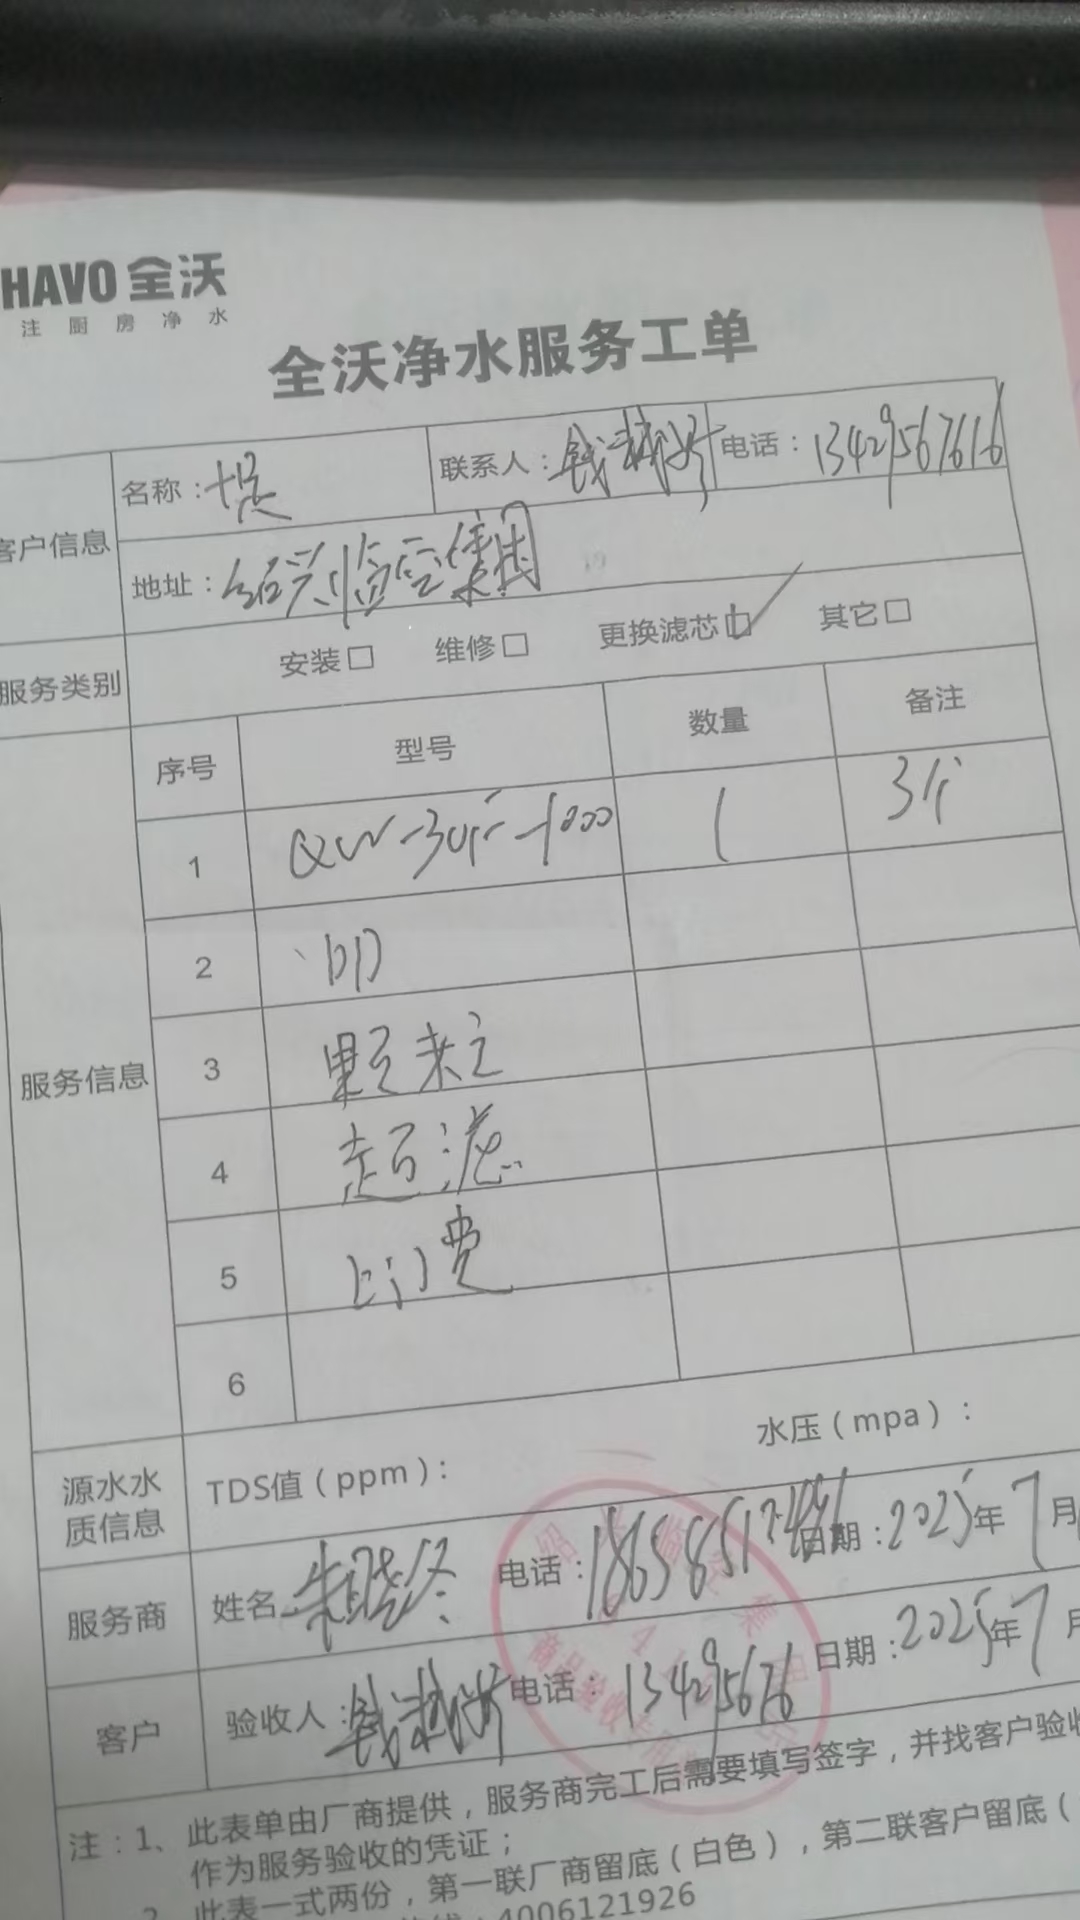 HAVO 全沃
注 厨 房 净 水
全沃净水服务工单
客户信息 名称： 联系人：钱 电话：13429567616
地址：绍兴临空集团
服务类别 安装□ 维修□ 更换滤芯□ 其它□
服务信息 序号 型号 数量 备注
1 QW- -1000 1 3个
2
3 颗
4 超滤
5 上门费
6
源水水质信息 TDS值（ppm）： 水压（mpa）：
服务商 姓名 朱 电话： 日期：2025年7月
客户 验收人：钱 电话：1342956716 日期：2025年7月
注：1、此表单由厂商提供，服务商完工后需要填写签字，并找客户验收
作为服务验收的凭证；
2、此表一式两份，第一联厂商留底（白色），第二联客户留底（
4006121926